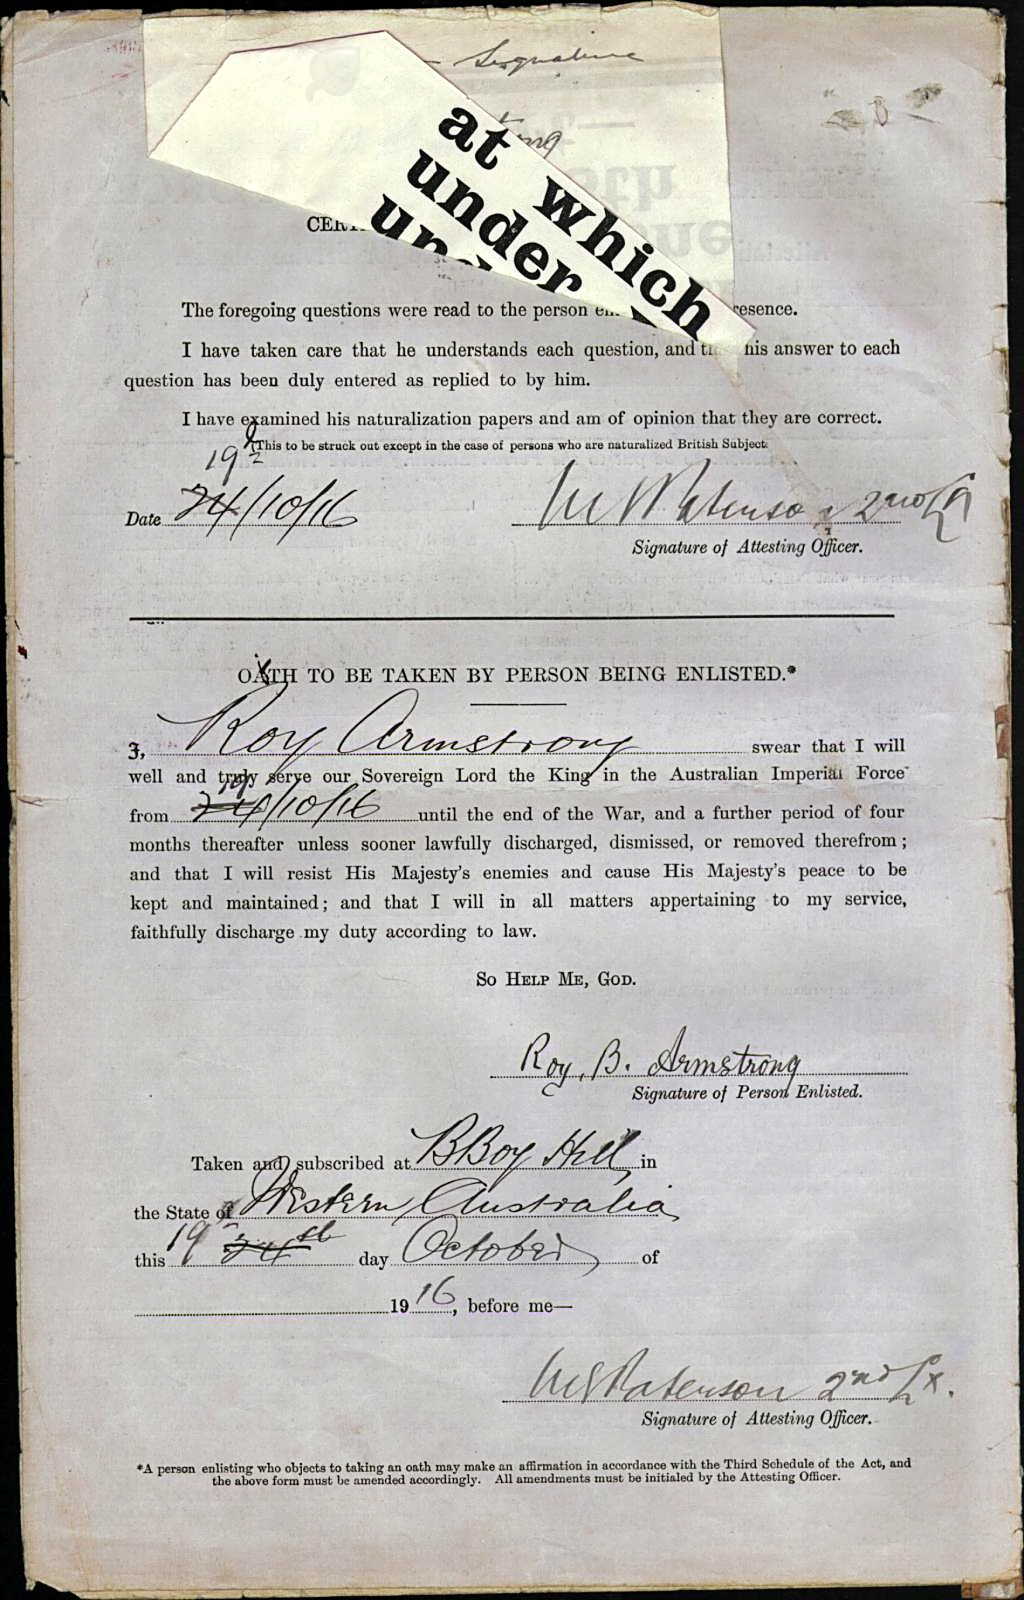 Signature
at which
under
CERT
The foregoing questions were read to the person en resence.
I have taken care that he understands each question, and th his answer to each
question has been duly entered as replied to by him.
I have examined his naturalization papers and am of opinion that they are correct.
(This to be struck out except in the case of persons who are naturalized British Subject
19
Date 24/10/16 Paterson 2nd Lt
Signature of Attesting Officer.
OATH TO BE TAKEN BY PERSON BEING ENLISTED.*
I, Roy Armstrong swear that I will
well and truly serve our Sovereign Lord the King in the Australian Imperial Force
19
from 24/10/16 until the end of the War, and a further period of four
months thereafter unless sooner lawfully discharged, dismissed, or removed therefrom;
and that I will resist His Majesty's enemies and cause His Majesty's peace to be
kept and maintained; and that I will in all matters appertaining to my service,
faithfully discharge my duty according to law.
SO HELP ME, GOD.
Roy. B. Armstrong
Signature of Person Enlisted.
Taken and subscribed at BBoy Hill in
the State of Western Australia
this 19 24th day October of
1916, before me—
Paterson 2nd Lt.
Signature of Attesting Officer.
*A person enlisting who objects to taking an oath may make an affirmation in accordance with the Third Schedule of the Act, and
the above form must be amended accordingly. All amendments must be initialed by the Attesting Officer.